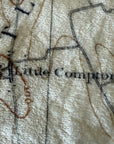 Little Compton